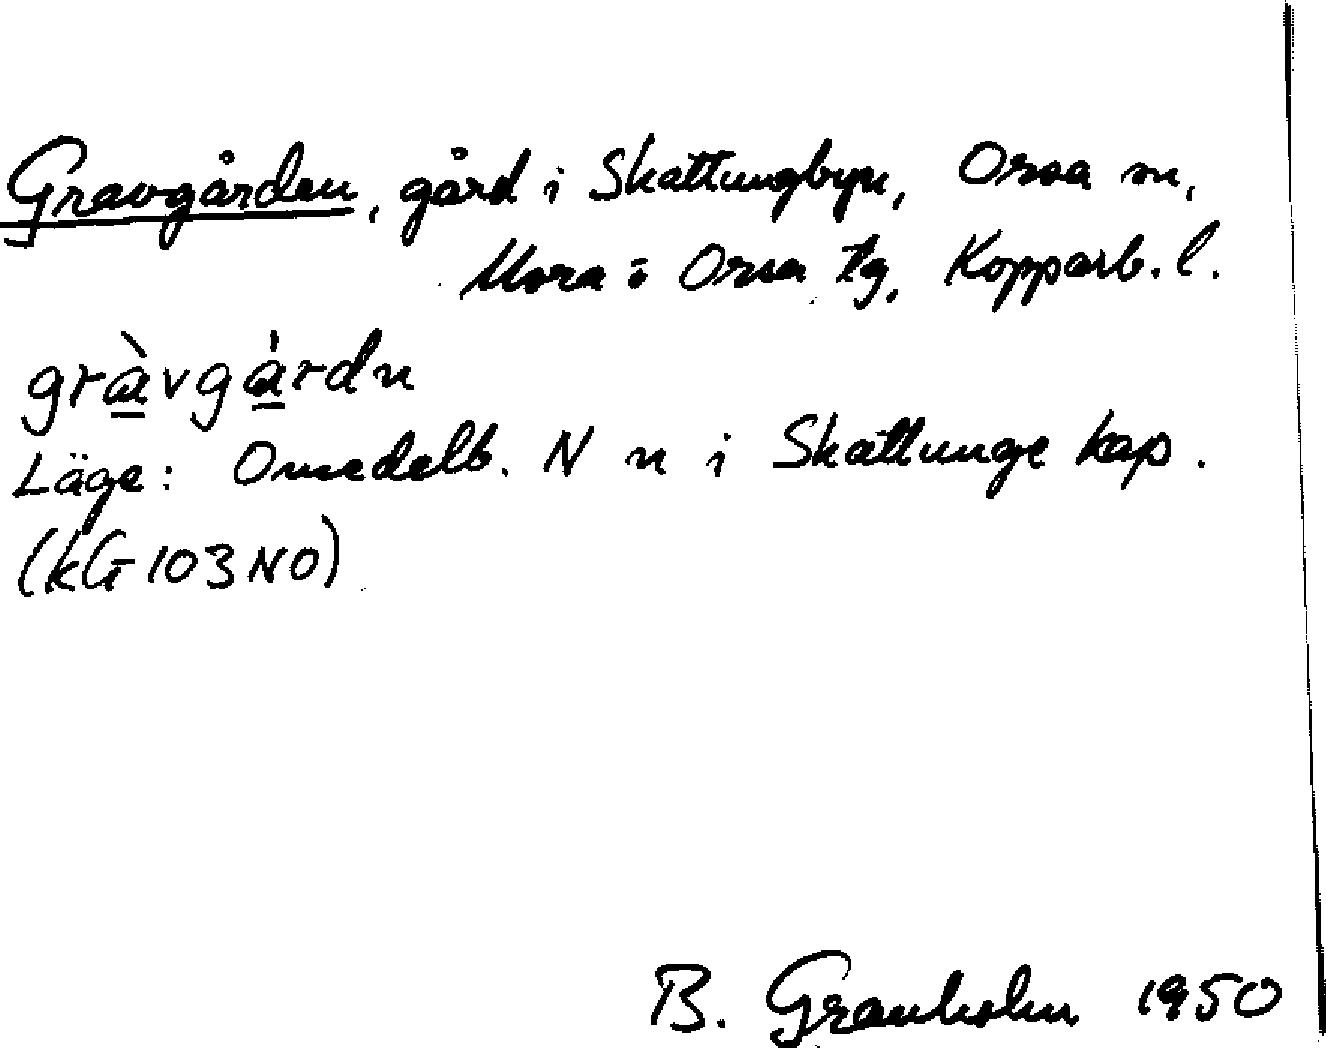 Gravgården, gård i Skattungbyn, Orsa sn,
Mora o Orsa tg, Kopparb. l.
gràvgårdn
Läge: Omedelb. N n i Skattunge kap.
(kG 103 NO)
B. Granholm 1950